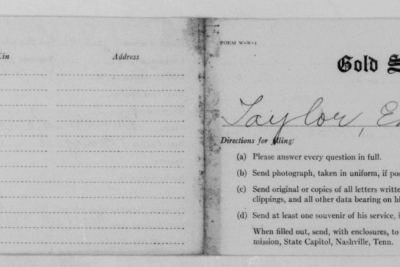 Address
FORM W-W-1
Gold
Taylor,
Directions for filing:
(a) Please answer every question in full.
(b) Send photograph, taken in uniform, if
(c) Send original or copies of all letters
clippings, and all other data bearing on
(d) Send at least one souvenir of his service,
When filled out, send, with enclosures, to
mission, State Capitol, Nashville, Tenn.